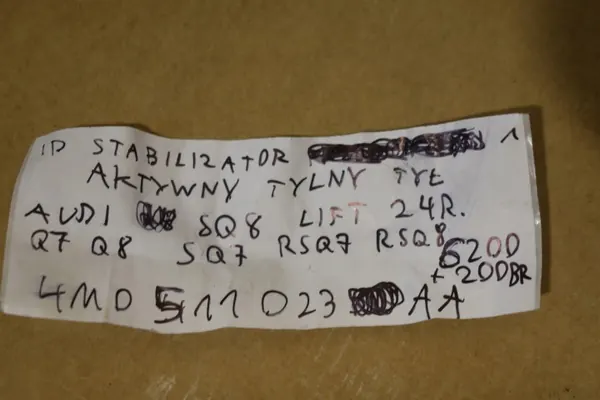 IP STABILIZATOR 1
AKTYWNY TYLNY TYŁ
AUDI SQ8 LIFT 24R.
Q7 Q8 SQ7 RSQ7 RSQ8
6200
+ 200BR
4M0 511 023 AA